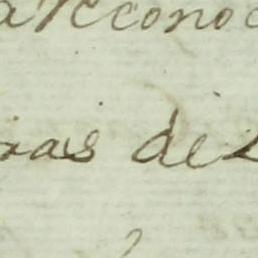 a reconoc
ras de